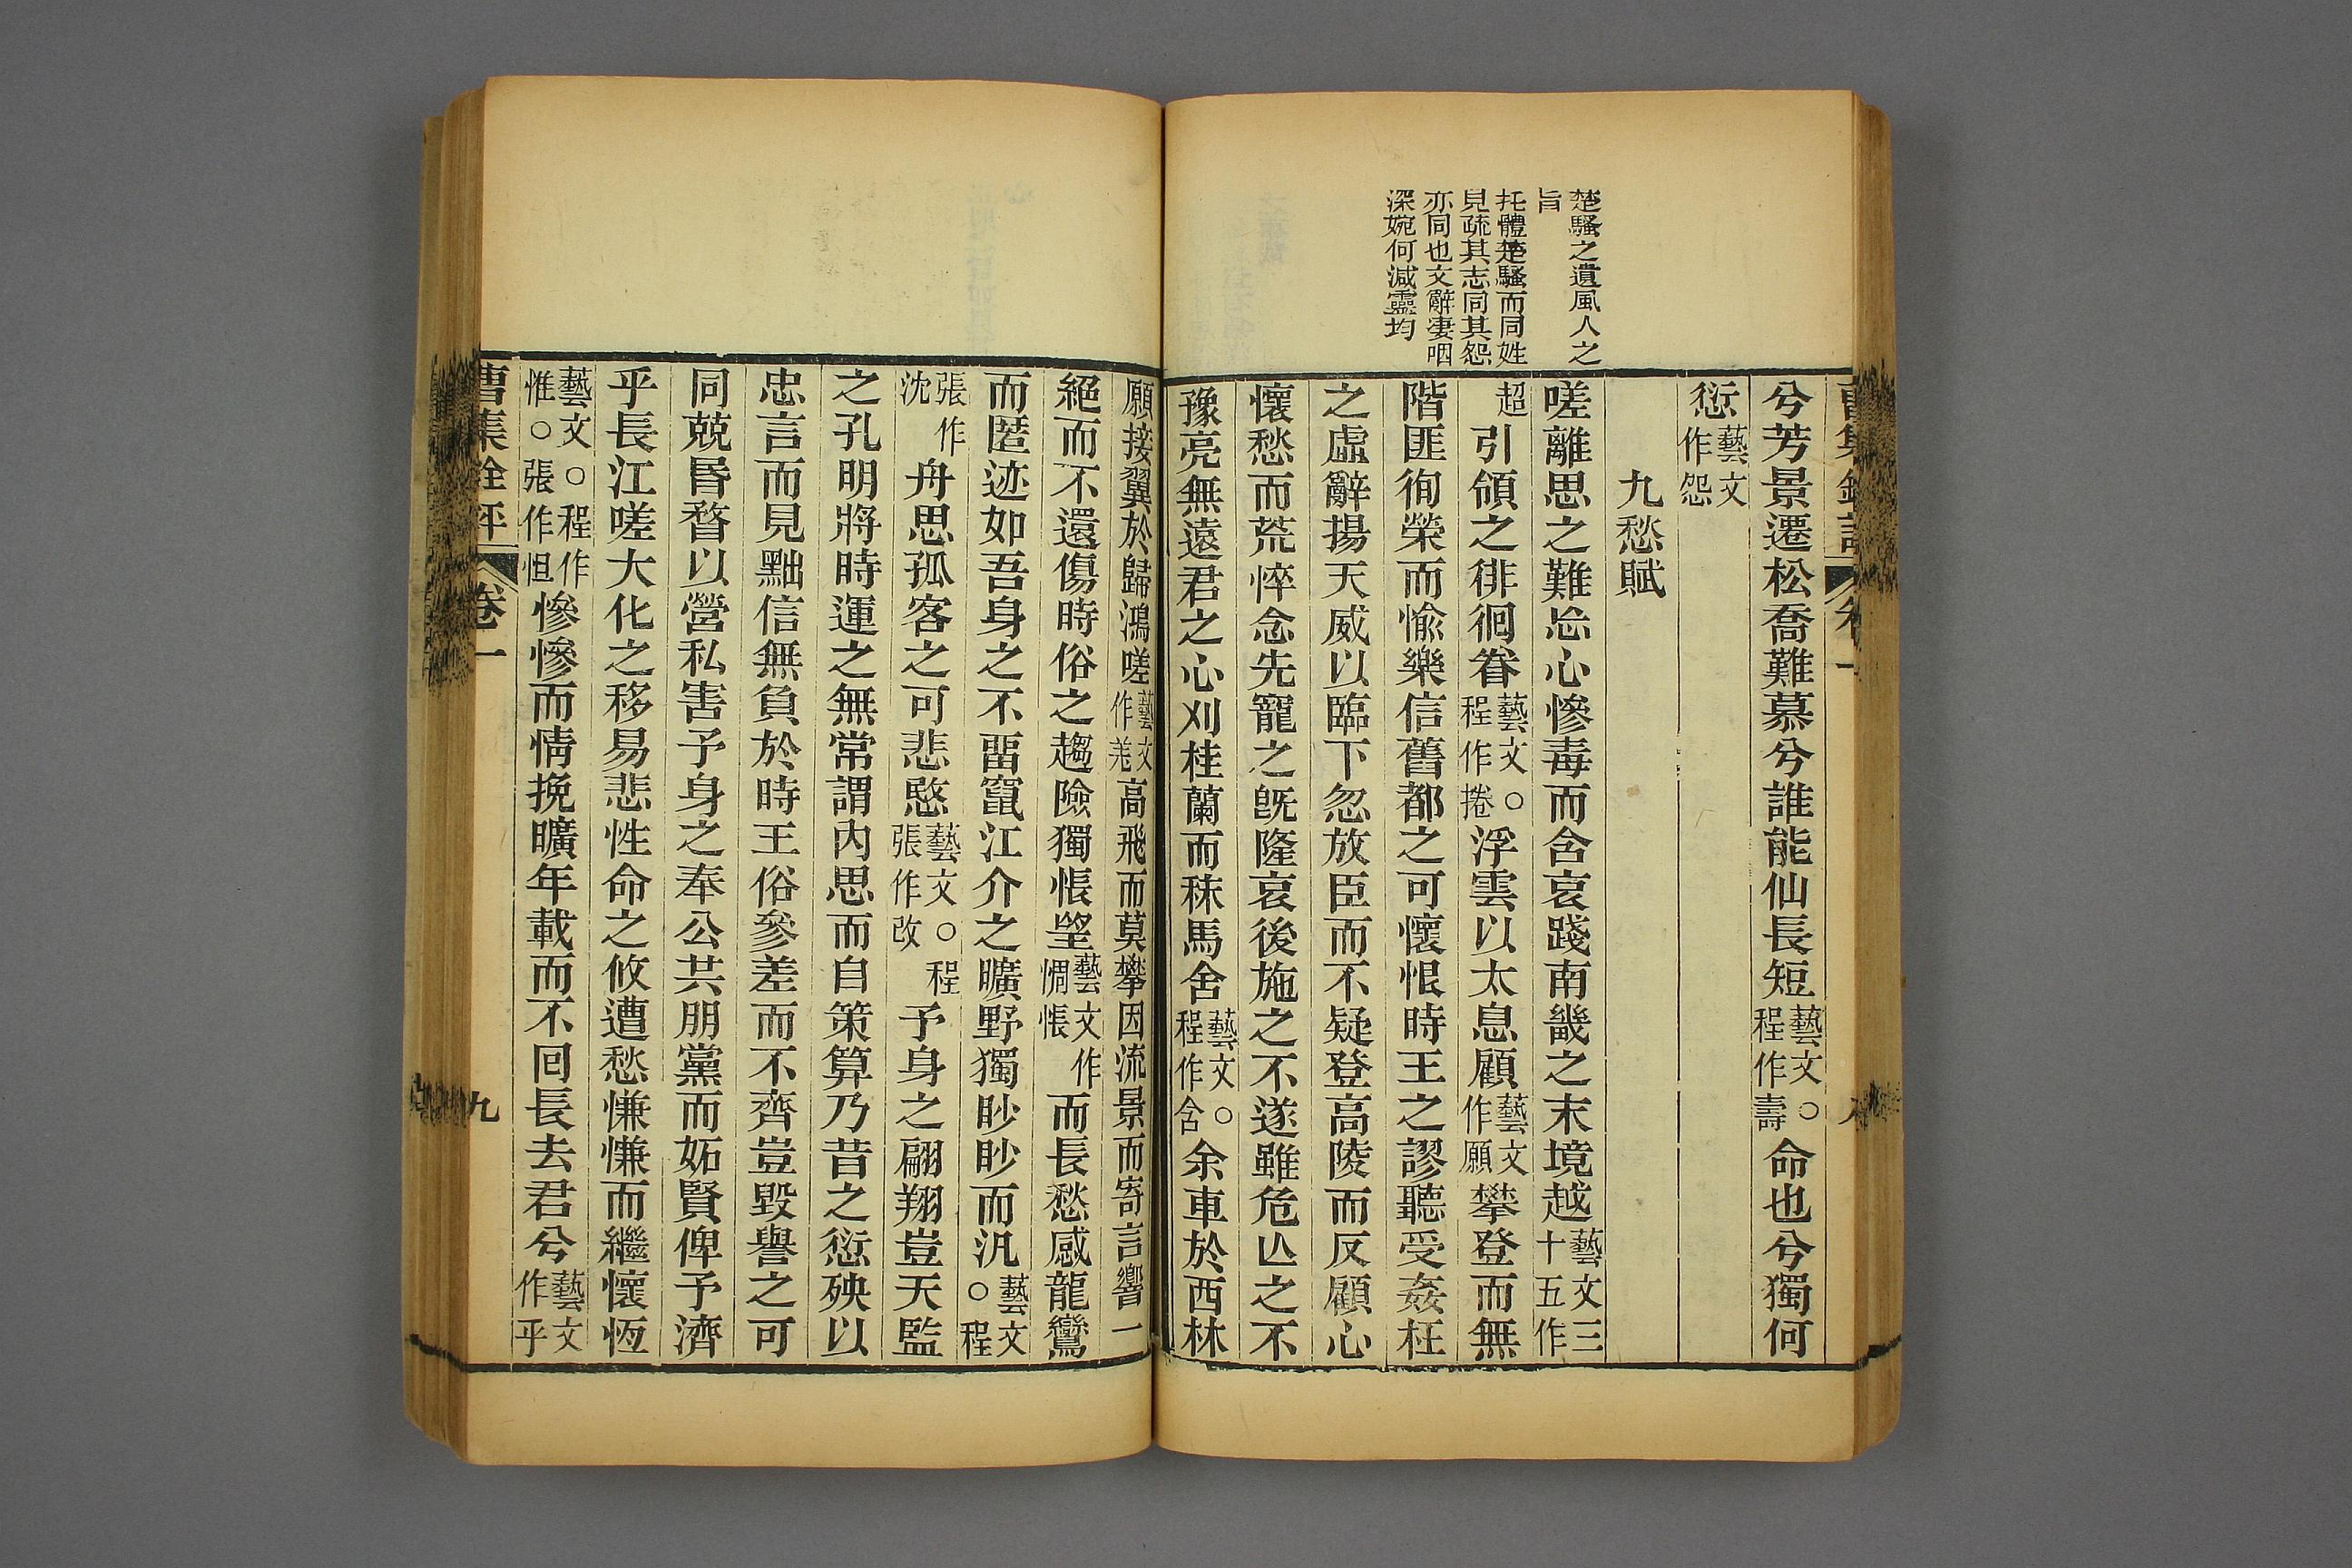 楚騷之遺風人之
旨
托體楚騷而同姓
見疏其志同其怨
亦同也文辭凄咽
深婉何減靈均
兮芳景遷松喬難慕兮誰能仙長短藝文○程作壽命也兮獨何
愆藝文作怨
九愁賦
嗟離思之難忘心慘毒而含哀踐南畿之末境越藝文三十五作
超引領之徘徊眷藝文○程作捲浮雲以太息顧藝文作願攀登而無
階匪徇榮而愉樂信舊都之可懷恨時王之謬聽受姦枉
之虛辭揚天威以臨下忽放臣而不疑登高陵而反顧心
懷愁而荒悴念先寵之旣隆哀後施之不遂雖危亾之不
豫亮無遠君之心刈桂蘭而秣馬舍藝文○程作含余車於西林
願接翼於歸鴻嗟藝文作羌高飛而莫攀因流景而寄言響一
絕而不還傷時俗之趨險獨悵望藝文作惆悵而長愁感龍鸞
而匿迹如吾身之不畱竄江介之曠野獨眇眇而汎藝文○程
張作沈舟思孤客之可悲愍藝文○程張作改予身之翩翔豈天監
之孔明將時運之無常謂內思而自策算乃昔之愆殃以
忠言而見黜信無負於時王俗參差而不齊豈毀譽之可
同兢昏瞀以營私害予身之奉公共朋黨而妬賢俾予濟
乎長江嗟大化之移易悲性命之攸遭愁慊慊而繼懷恆
藝文○程作惟○張作怛慘慘而情挽曠年載而不回長去君兮藝文作乎
曹集銓評
卷一
九